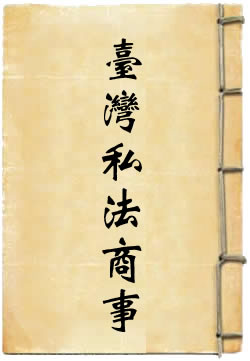 臺灣私法商事